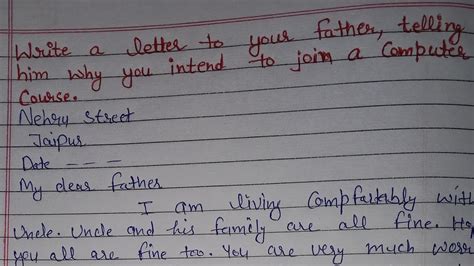 Write a letter to your father, telling
him why you intend to join a Computer
Course.
Nehru Street
Jaipur
Date - - -
My dear father
I am living Compfartably with
Uncle. Uncle and his family are all fine. Ho
you all are fine too. You are very much worr